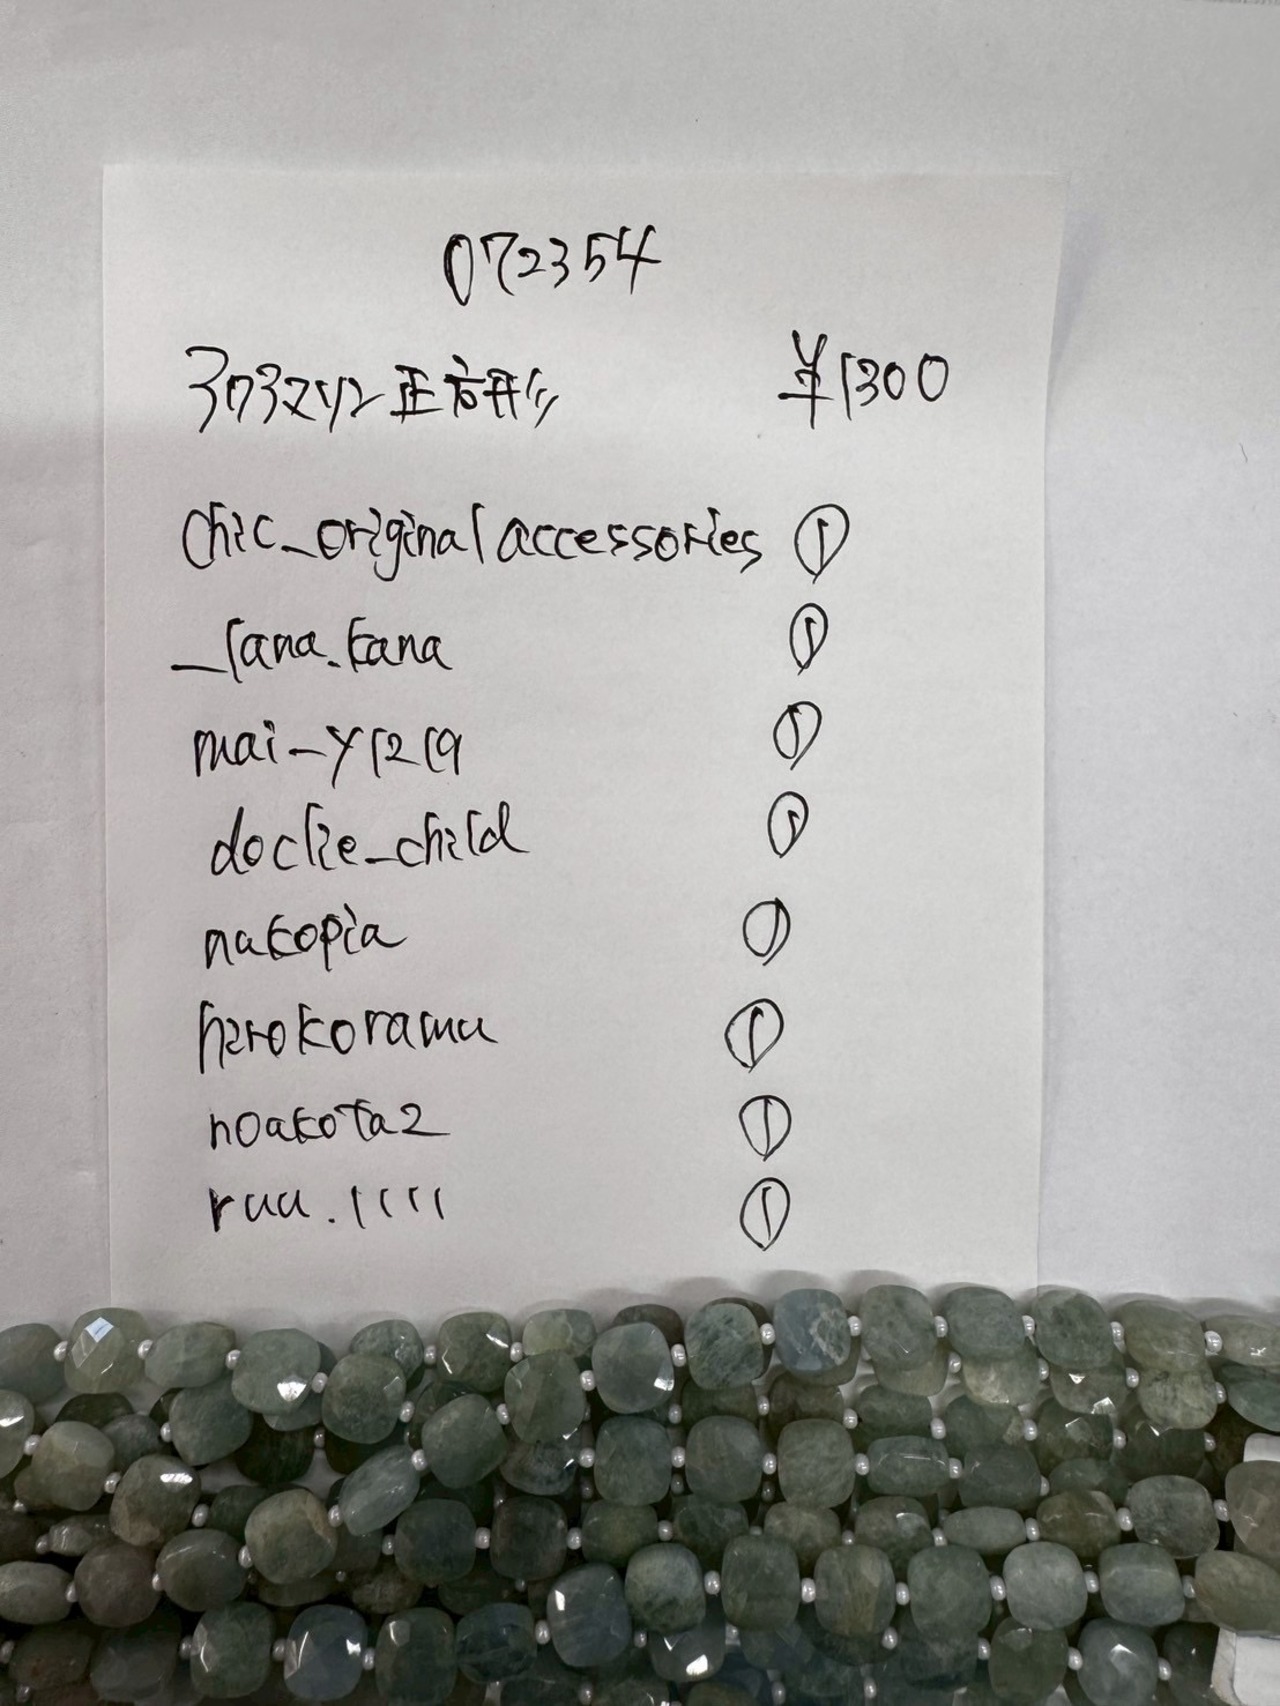 072354
正方形 ¥1300
chic_originalaccessories ①
_lana.kana ①
mai-y1219 ①
doclie_child ①
nakopia ①
hirokoramu ①
noakota2 ①
ruu.1111 ①